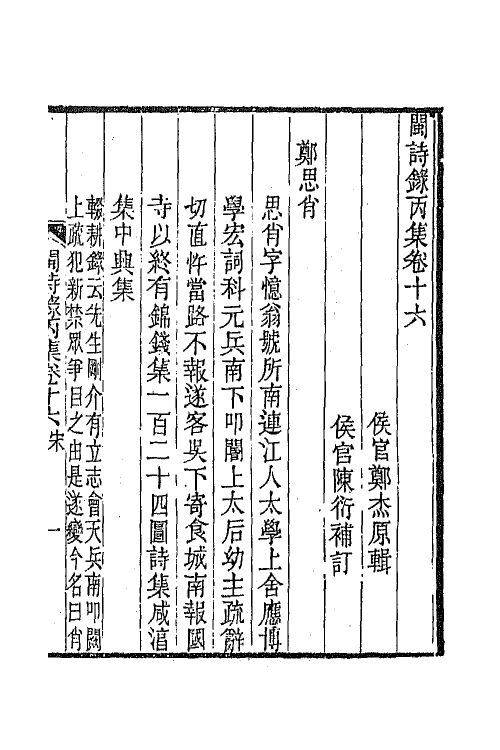 閩詩錄丙集卷十六
侯官鄭杰原輯
侯官陳衍補訂
鄭思肖
思肖字憶翁號所南連江人太學上舍應博
學宏詞科元兵南下叩閽上太后幼主疏辭
切直忤當路不報遂客吳下寄食城南報國
寺以終有錦錢集一百二十四圖詩集咸淳
集中興集
輟耕錄云先生剛介有立志會天兵南叩闕
上疏犯新禁眾爭目之由是遂變今名曰肖
閩詩錄丙集卷十六宋
一